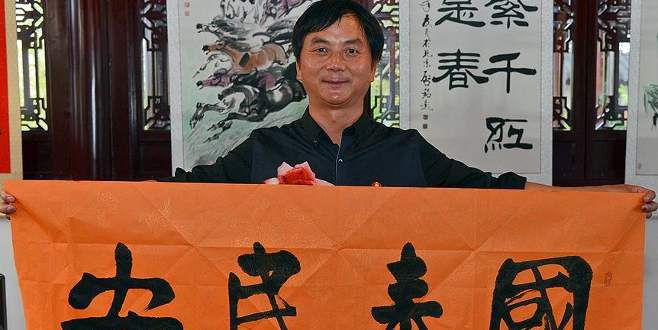 紫千紅
是春
國泰民安